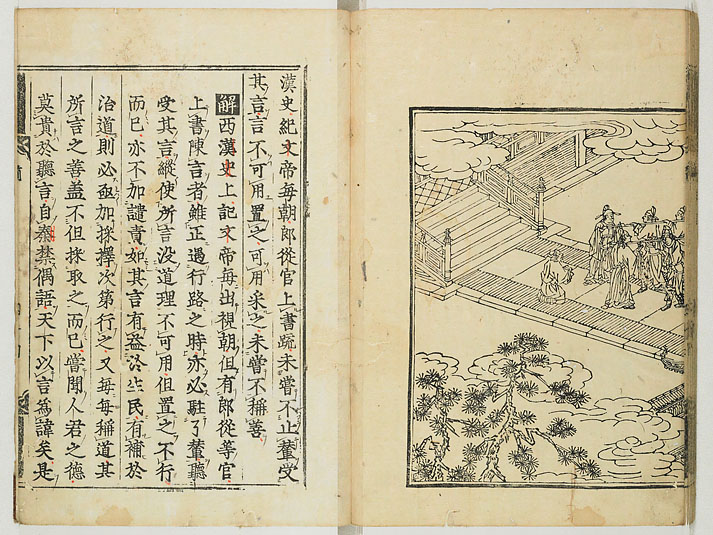 漢史紀文帝每朝郎從官上書疏未嘗不止輦受
其言言不可用置之可用采之未嘗不稱善
解西漢史上記文帝每出視朝但有郎從等官
上書陳言者雖正遇行路之時亦必駐了輦聽
受其言縱使所言沒道理不可用但置之不行
而已亦不加譴責如其言有益於生民有補於
治道則必亟加採擇次第行之又每每稱道其
所言之善蓋不但採取之而已嘗聞人君之德
莫貴於聽言自秦禁偶語天下以言為諱矣是